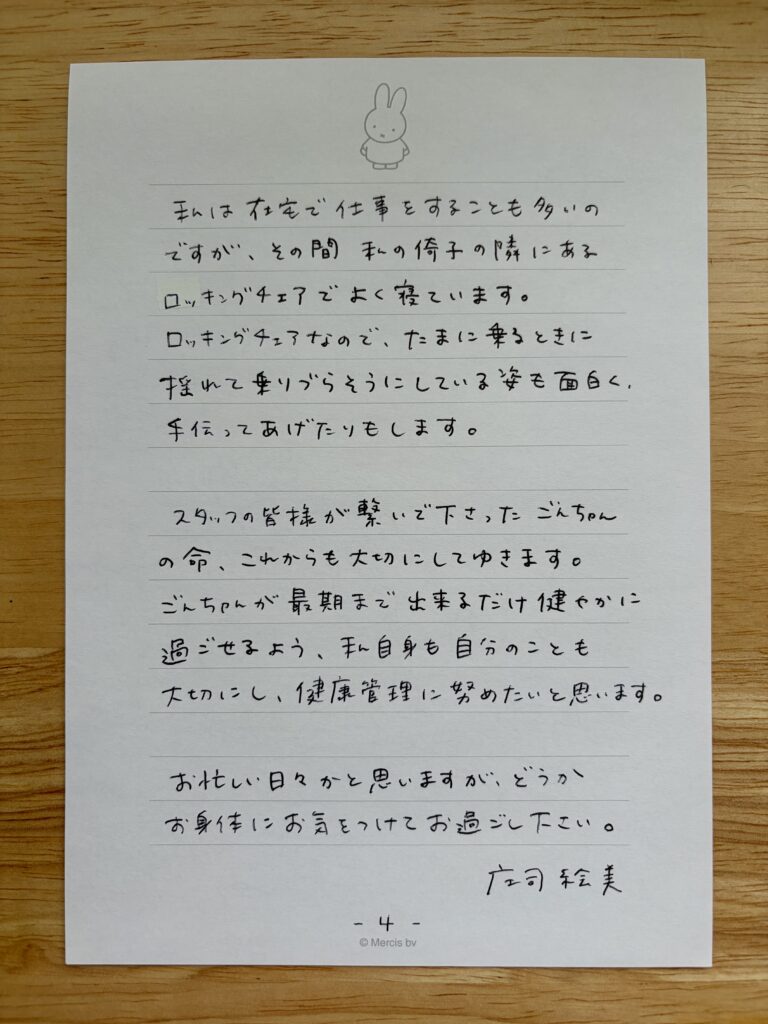 私は在宅で仕事をすることも多いの
ですが、その間 私の倚子の隣にある
ロッキングチェアでよく寝ています。
ロッキングチェアなので、たまに乗るときに
揺れて乗りづらそうにしている姿も面白く、
手伝ってあげたりもします。
スタッフの皆様が繋いで下さったごんちゃん
の命、これからも大切にしてゆきます。
ごんちゃんが最期まで出来るだけ健やかに
過ごせるよう、私自身も自分のことも
大切にし、健康管理に努めたいと思います。
お忙しい日々かと思いますが、どうか
お身体にお気をつけてお過ごし下さい。
庄司絵美
- 4 -
© Mercis bv